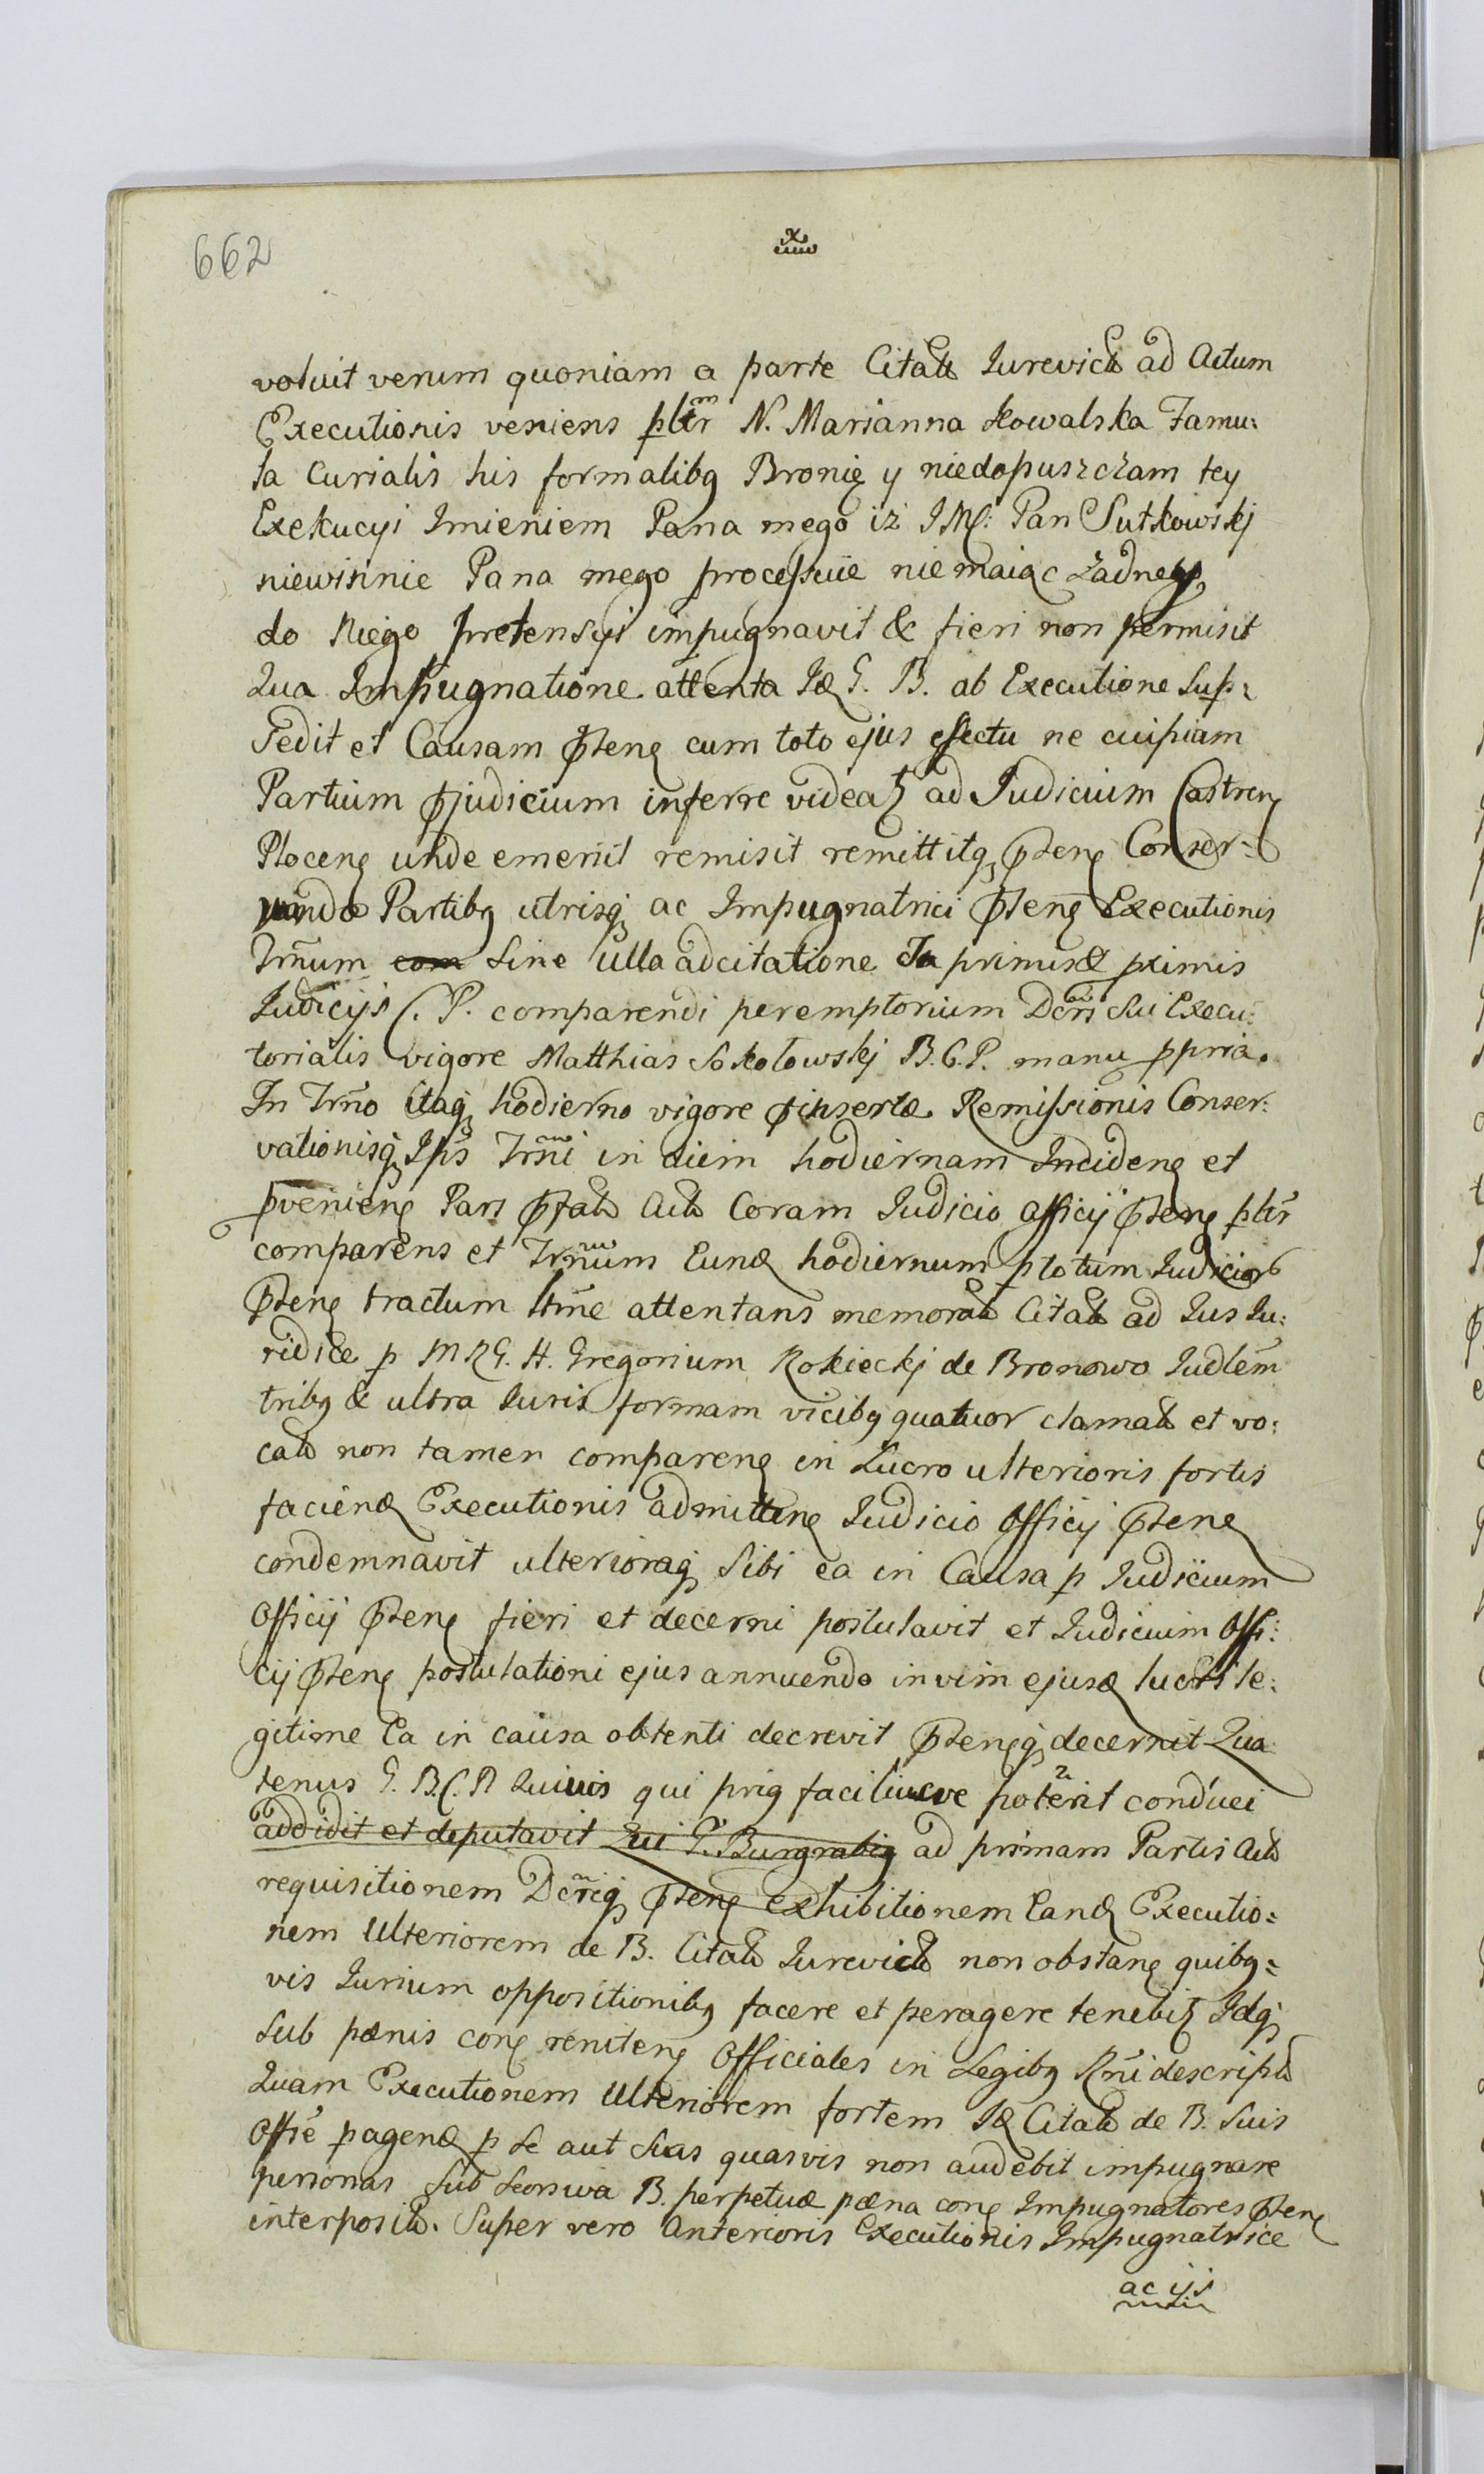 662
x
voluit verum quoniam a parte Citati Jurevicii ad Actum
Executionis veniens pltr̄ N. Marianna Kowalska Famu:
la Curialis his formalibꝫ Bronię y niedopuszczam tey
Exekucyi Imieniem Pana mego iż JMć: Pan Sutkowskj
niewinnie Pana mego processuie niemaiąc żadney
do Niego pretensyi impugnavit & fieri non permisit
Qua Impugnatione attenta Id G. B. ab Executione Sup:
sedit et Causam pñtem cum toto ejus effectu ne cuipiam
Partium pjudicium inferre videatꝫ ad Judicium Castren
Plocen unde emerit remisit remittitqꝫ pñtem Conser=
vando Partibꝫ utrisqꝫ ac Impugnatrici pñten Executionis
Trm̄um com Sine ulla adcitatione In primis & pximis
Judicijs C. P. comparendi peremptorium Dcri Sui Execu:
torialis vigore Matthias Sokołowskj B.C.P. manu ppria.
In Trn̄o itaqꝫ hodierno vigore pinsertæ Remissionis Conser:
vationisqꝫ Ipīs Trn̄i in diem hodiernam Inciden et
pvenien Pars pfata Act Coram Judicio Officij pñten pltr̄
comparens et Trn̄um Eund hodiernum p totum Judicior
pñten tractum ltm̄e attentans memorat Citat ad Jus Ju:
ridice p MRG. H. Gregorium Rokieckj de Bronowo Judlem̄
tribꝫ & ultra Juris formam vicibꝫ quatuor clamat et vo:
cat non tamen comparen in Lucro ulterioris fortis
faciend Executionis admitten Judicio Officij pñten
condemnavit ulterioraqꝫ Sibi ea in Causa p Judicium
Officij pñten fieri et decerni postulavit et Judicium Offi:
cij pñten postulationi ejus annuendo in vim ejusd lucri le:
gitime Ea in causa obtenti decrevit pñtenqꝫ decernit Qua
tenus G. B.C.P. Quivis qui priꝫ faciliusve poterit conduci
addidit et deputavit Qui G. Burgrabiꝫ ad primam Partis Act
requisitionem Dcreiqꝫ pñten exhibitionem Eand Executio=
nem Ulteriorem de B. Citat Jurevicii non obstan quibꝫ=
vis Jurium oppositionibꝫ facere et peragere tenebitꝫ Idqꝫ
Sub pænis con reniten Officiales in Legibꝫ Rn̄i descript
Quam Executionem Ulteriorem fortem Id Citat de B. Suis
Offiē pagend p Se aut Suas quasvis non audebit impugnare
personas Sub Seorsiva B. perpetuæ pæna con Impugnatores pñten
interposita. Super vero Anterioris Executionis Impugnatrice
ac ijs